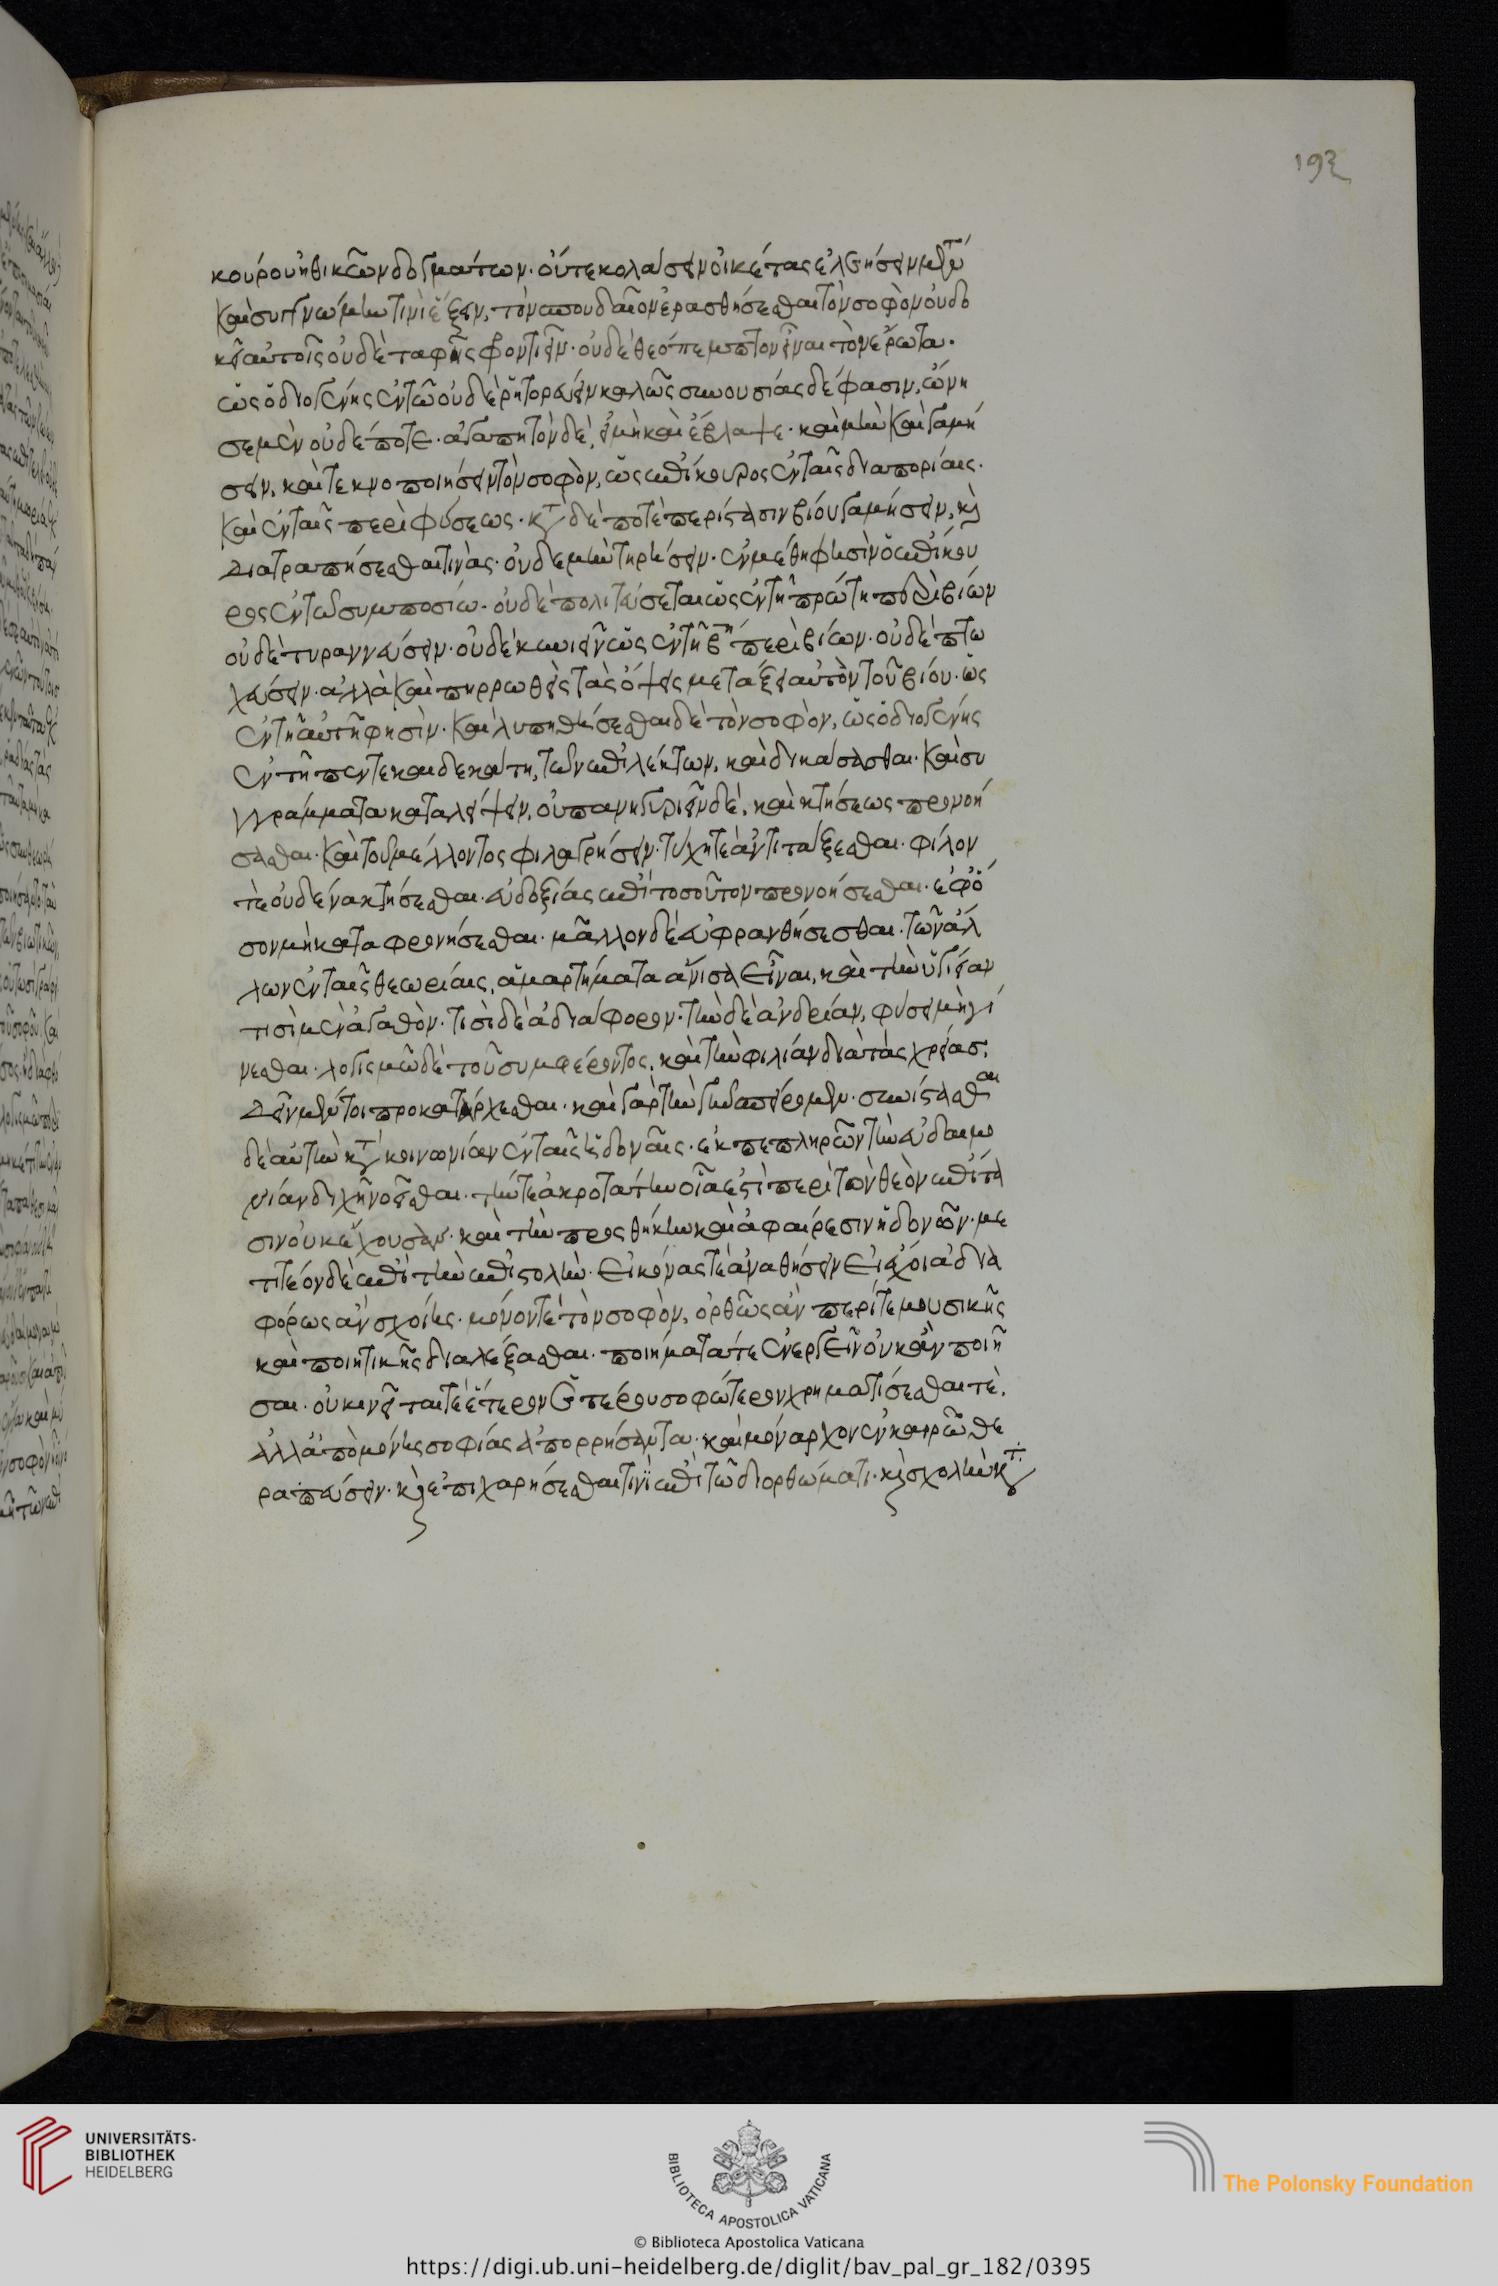 192
κούρου ἠθικῶν δογμάτων. οὔτε κολάσειν οἰκέτας ἐλεήσειν μέντ
καὶ συγγνώμην τινὶ ἕξειν, τὸν σπουδαῖον ἐρασθήσεσθαι τὸν σοφὸν οὐ δο
κεῖ αὐτοῖς οὐδὲ ταφῆς φροντιεῖν. οὐδὲ θεόπεμπτον εἶναι τὸν ἔρωτα.
ὡς ὁ διογένης ἐν τῶ οὐδὲ ῥητορεύειν καλῶς συνουσίας δέ φασιν, ὤνη
σε μὲν οὐδέποτε. ἀγαπητὸν δὲ, εἰ μὴ καὶ ἔβλαψε. καὶ μὴν καὶ γαμή
σειν, καὶ τεκνοποιήσειν τὸν σοφὸν, ὡς ἐπίκουρος ἐν ταῖς διαπορίαις.
καὶ ἐν ταῖς περὶ φύσεως. κτ δέ ποτὲ περίστασιν βίου γαμήσειν, κὶ
διατραπήσεσθαι τινὰς. οὐδὲ μὴν τηρήσειν. ἐν μέθη φησὶν ὁ ἐπίκου
ρος ἐν τῶ συμποσίω. οὐδὲ πολιτεύσεται ὡς ἐν τῆ πρώτη περὶ βίων
οὐδὲ τυραννεύσειν. οὐδὲ κυνιεῖν ὡς ἐν τῆ βτη περὶ βίων. οὐδὲ πτω
χεύσειν. ἀλλὰ καὶ πηρρωθεὶς τὰς ὄψεις μετάξει αὐτὸν τοῦ βίου. ὡς
ἐν τῆ αὐτῆ φησὶν. καὶ λυπηθήσεσθαι δὲ τὸν σοφὸν, ὡς ὁ διογένης
ἐν τῆ πεντεκαιδεκάτη, τῶν ἐπιλέκτων, καὶ δικάσασθαι. καὶ συ
γγράμματα καταλείψειν, οὐ πανηγυριεῖν δὲ, καὶ κτήσεως προνοή
σασθαι. καὶ τοῦ μέλλοντος φιλαγρήσειν. τύχη τὲ ἀντιτάξεσθαι. φίλον
τὲ οὐδένα κτήσεσθαι. εὐδοξίας ἐπὶ τοσοῦτον προνοήσεσθαι. ἐφ' ὅ
σον μὴ καταφρονήσεσθαι. μᾶλλον δὲ εὐφρανθήσεσθαι. τῶν ἄλ
λων ἐν ταῖς θεωρίαις, ἁμαρτήματα ἄνισα εἶναι, καὶ τὴν ὑγίειαν
τισὶ μὲν ἀγαθὸν. τισὶ δὲ ἀδιάφορον. τὴν δὲ ἀνδρίαν, φύσει μὴ γί
νεσθαι. λογισμῶ δὲ τοῦ συμφέροντος. καὶ τὴν φιλίαν διὰ τὰς χρείας.
δεῖν μέντοι προκατάρχεσθαι. καὶ γὰρ τὴν γῆν σπείρομεν. συνίστασθαι
δὲ αὐτὴν κτ κοινωνίαν ἐν ταῖς ἡδοναῖς. ἐκπεπληρῶν τὴν εὐδαιμο
νίαν διχῆ νοεῖσθαι. τήν τε ἀκροτάτην οἷα ἐστὶ περὶ τὸν θεὸν ἐπίτα
σιν οὐκ ἔχουσαν. καὶ τὴν προσθήκην καὶ ἀφαίρεσιν ἡδονῶν. με
τιτέον δὲ ἐπὶ τὴν ἐπιστολὴν. εἰκόνας τὲ ἀναθήσειν εἰ ἔχοι ἀδια
φόρως ἂν σχοίης. μόνον τὲ τὸν σοφὸν, ὀρθῶς ἂν περί τε μουσικῆς
καὶ ποιητικῆς διαλέξασθαι. ποιήματά τε ἐνεργεῖν οὐκ ἂν ποιῆ
σαι. οὐ κινεῖται τὲ ἕτερον ἑτέρου σοφώτερον χρηματίσεσθαι τὲ,
ἀλλ' ἀπὸ μόνης σοφίας ἀπορρήσαντα. καὶ μόναρχον ἐν καιρῶ θε
ραπεύσειν. κὶ ἐπιχαρήσεσθαι τινὶ ἐπὶ τῶ διορθώματι. κὶ σχολὴν κτ
UNIVERSITÄTS-
BIBLIOTHEK
HEIDELBERG
BIBLIOTECA APOSTOLICA VATICANA
The Polonsky Foundation
© Biblioteca Apostolica Vaticana
https://digi.ub.uni-heidelberg.de/diglit/bav_pal_gr_182/0395